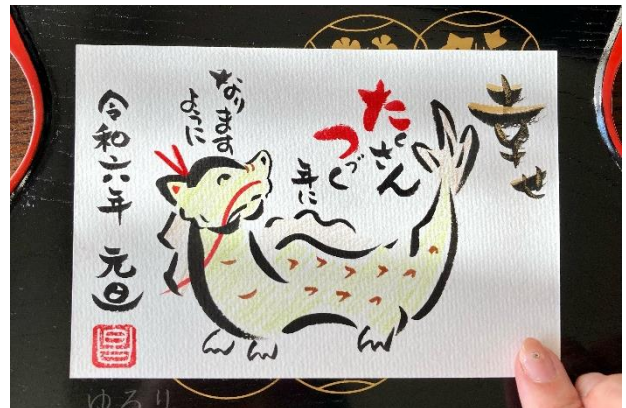 幸せ
たくさん
つづく
年に
なります
ように
令和六年 元旦
ゆるり